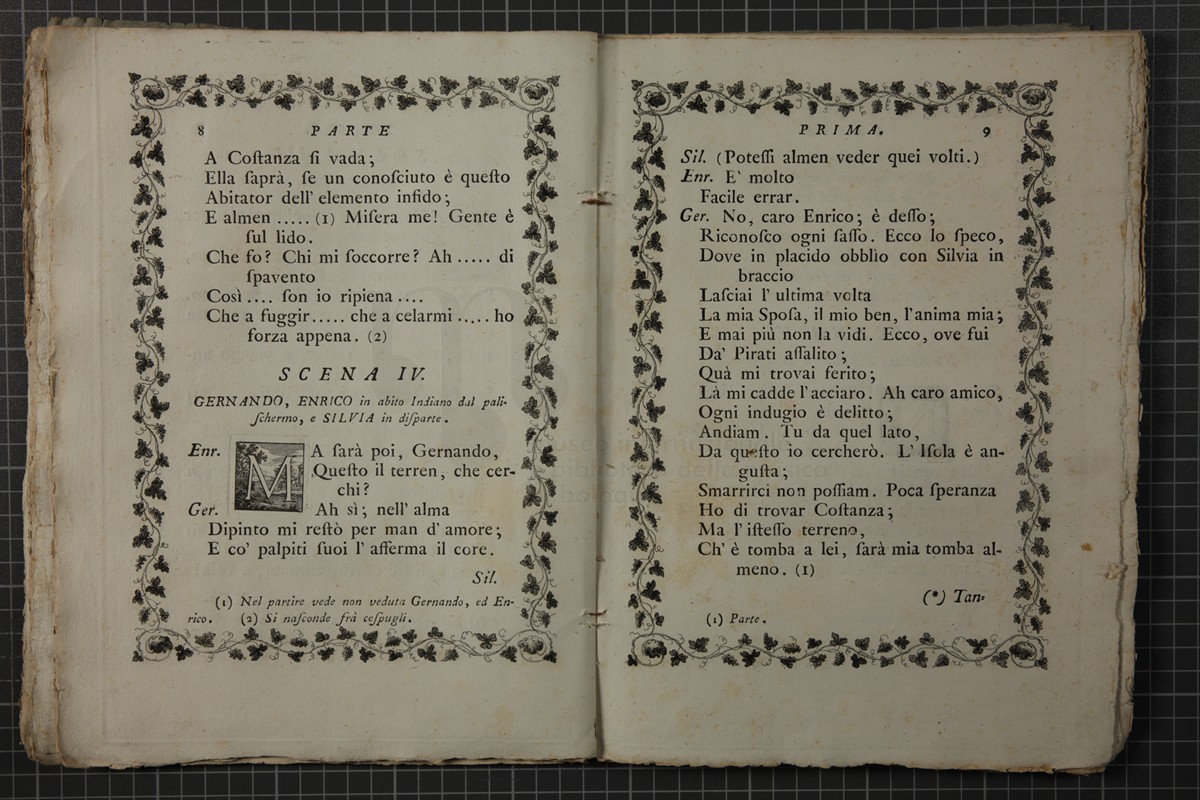 8 PARTE
A Coſtanza ſi vada;
Ella ſaprà, ſe un conoſciuto è queſto
Abitator dell' elemento infido;
E almen ..... (1) Miſera me! Gente è
ſul lido.
Che fo? Chi mi ſoccorre? Ah ..... di
ſpavento
Così .... ſon io ripiena ....
Che a fuggir..... che a celarmi ..... ho
forza appena. (2)
SCENA IV.
GERNANDO, ENRICO in abito Indiano dal pali-
ſchermo, e SILVIA in diſparte.
Enr. MA ſarà poi, Gernando,
Queſto il terren, che cer-
chi?
Ger. Ah sì; nell' alma
Dipinto mi reſtò per man d' amore;
E co' palpiti ſuoi l' afferma il core.
Sil.
(1) Nel partire vede non veduta Gernando, ed En-
rico. (2) Si naſconde frà ceſpugli.
PRIMA. 9
Sil. (Poteſſi almen veder quei volti.)
Enr. E' molto
Facile errar.
Ger. No, caro Enrico; è deſſo;
Riconoſco ogni ſaſſo. Ecco lo ſpeco,
Dove in placido obblìo con Silvia in
braccio
Laſciai l' ultima volta
La mia Spoſa, il mio ben, l'anima mia;
E mai più non la vidi. Ecco, ove fui
Da' Pirati aſſalito;
Quà mi trovai ferito;
Là mi cadde l'acciaro. Ah caro amico,
Ogni indugio è delitto;
Andiam. Tu da quel lato,
Da queſto io cercherò. L' Iſola è an-
guſta;
Smarrirci non poſſiam. Poca ſperanza
Ho di trovar Coſtanza;
Ma l' iſteſſo terreno,
Ch' è tomba a lei, ſarà mia tomba al-
meno. (1)
(*) Tan-
(1) Parte.